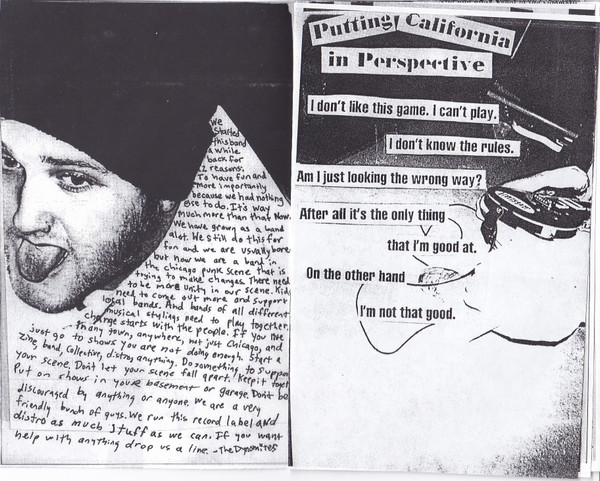 We
started
this band
a while
back for
2 reasons.
To have fun and
more importantly
because we had nothing
else to do. It's way
much more than that Now.
We have grown as a band
alot. We still do this for
fun and we are usually bored
but now we are a band in
the chicago punk scene that is
trying to make changes. There needs
to be more unity in our scene. Kids
need to come out more and support
local bands. And bands of all different
musical stylings need to play together.
change starts with the people. If you live
in any town, anywhere, not just Chicago, and
just go to shows you are not doing enough. Start a
zine, band, Collective, distro, anything. Do something to support
your scene. Don't let your scene fall apart. Keep it together
Put on shows in your basement or garage. Don't be
discouraged by anything or anyone. We are a very
friendly bunch of guys. We run this record label and
distro as much stuff as we can. If you want
help with anything drop us a line. - The Dynomites
Putting California
in Perspective
I don't like this game. I can't play.
I don't know the rules.
Am I just looking the wrong way?
After all it's the only thing
that I'm good at.
On the other hand
I'm not that good.